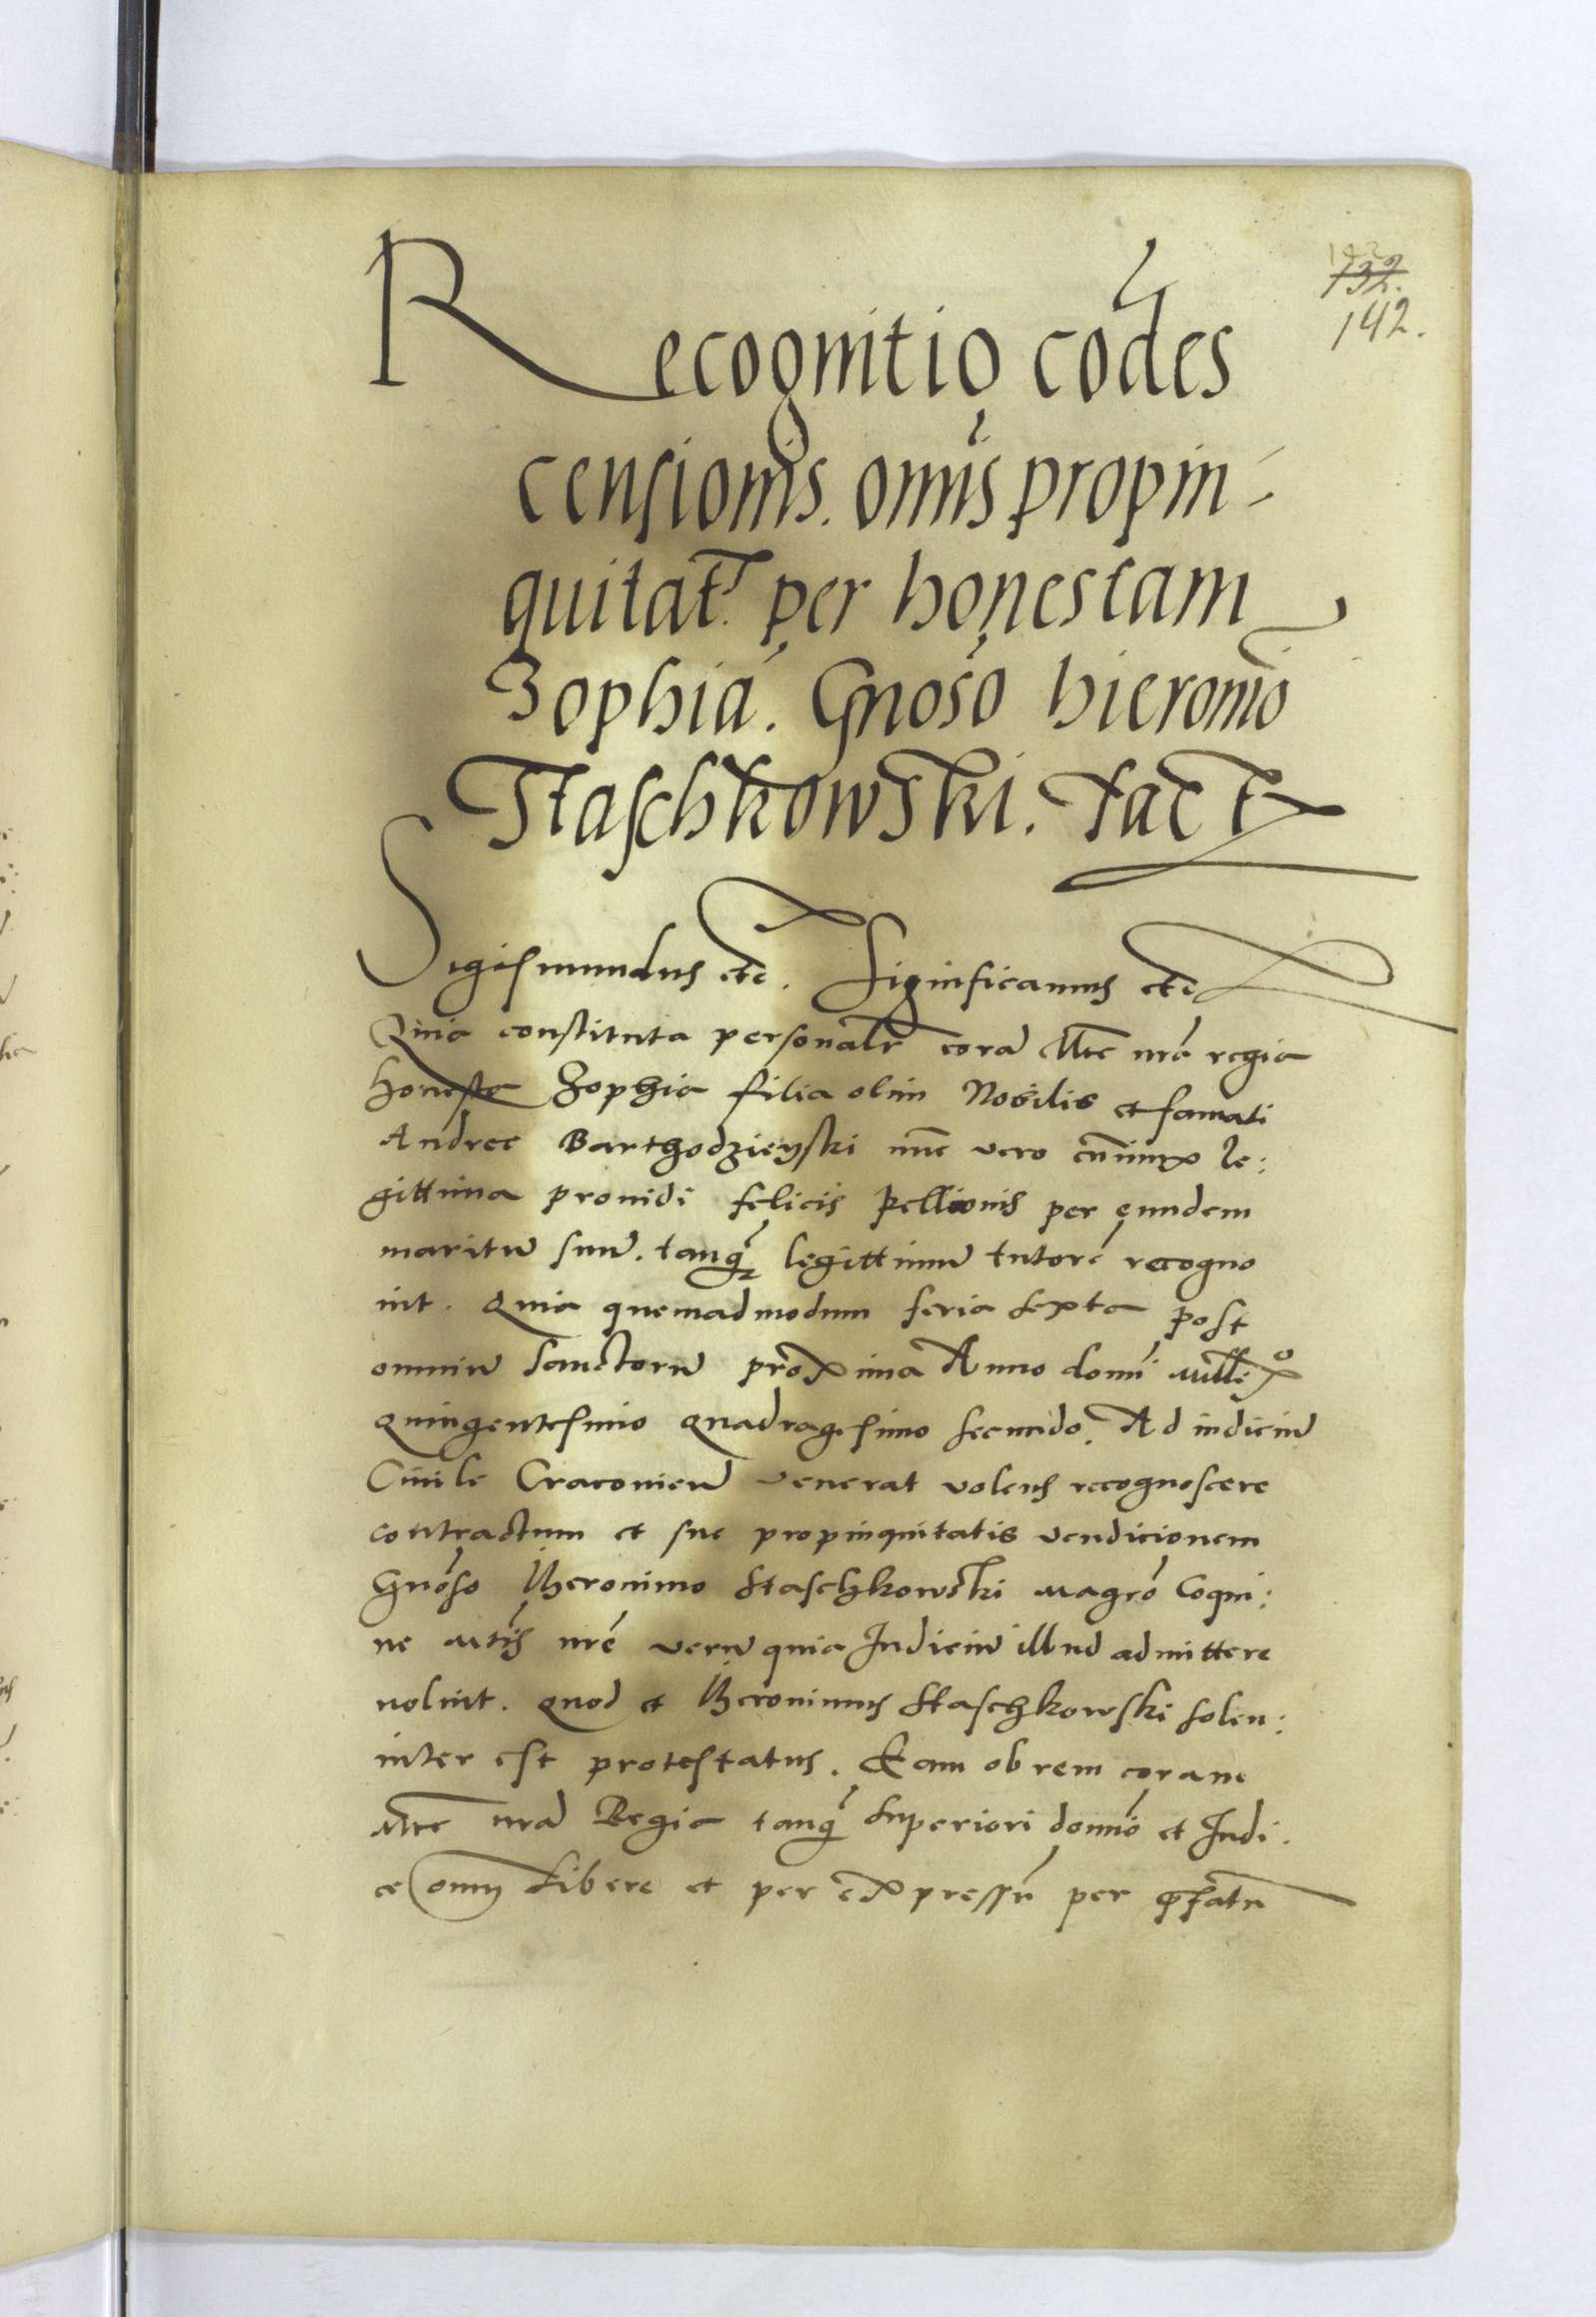 132.
142.
Recognitio cōdes
censionis. om̄is propin-
quitat̄. per honestam
Zophiā. Gnoso hieronīo
Staschkowski. fact
Sigismundus etc. Significamus etc
Quia constituta personalr̄ corā Mte nrā regia
honesta Zophia filia olim Nobilis et famati
Andree Barthodzieyski nunc vero cōniunx le:
gittima prouidi felicis Pellionis per eundem
maritū suū. tanq̄ legittimū tutorē recogno
uit. Quia quemadmodum feria sexta post
omniū Sanctorū proxima Anno domī mille°
quingentesimo quadragesimo secundo. Ad iudiciū
Ciuile Cracovień venerat volens recognoscere
contractum et sue propinquitatis vendicionem
Gnōso Hieronimo Staschkowski magrō Coqui:
ne Mtis nrē verū quia Judiciū illud admittere
noluit. quod et Hieronimus Staschkowski solen:
niter est protestatus. Eam ob rem coram
Mte nrā Regia tanq̄ superiori domīo et Judi.
ce om̄ Libere et per expressū per p̄fatū